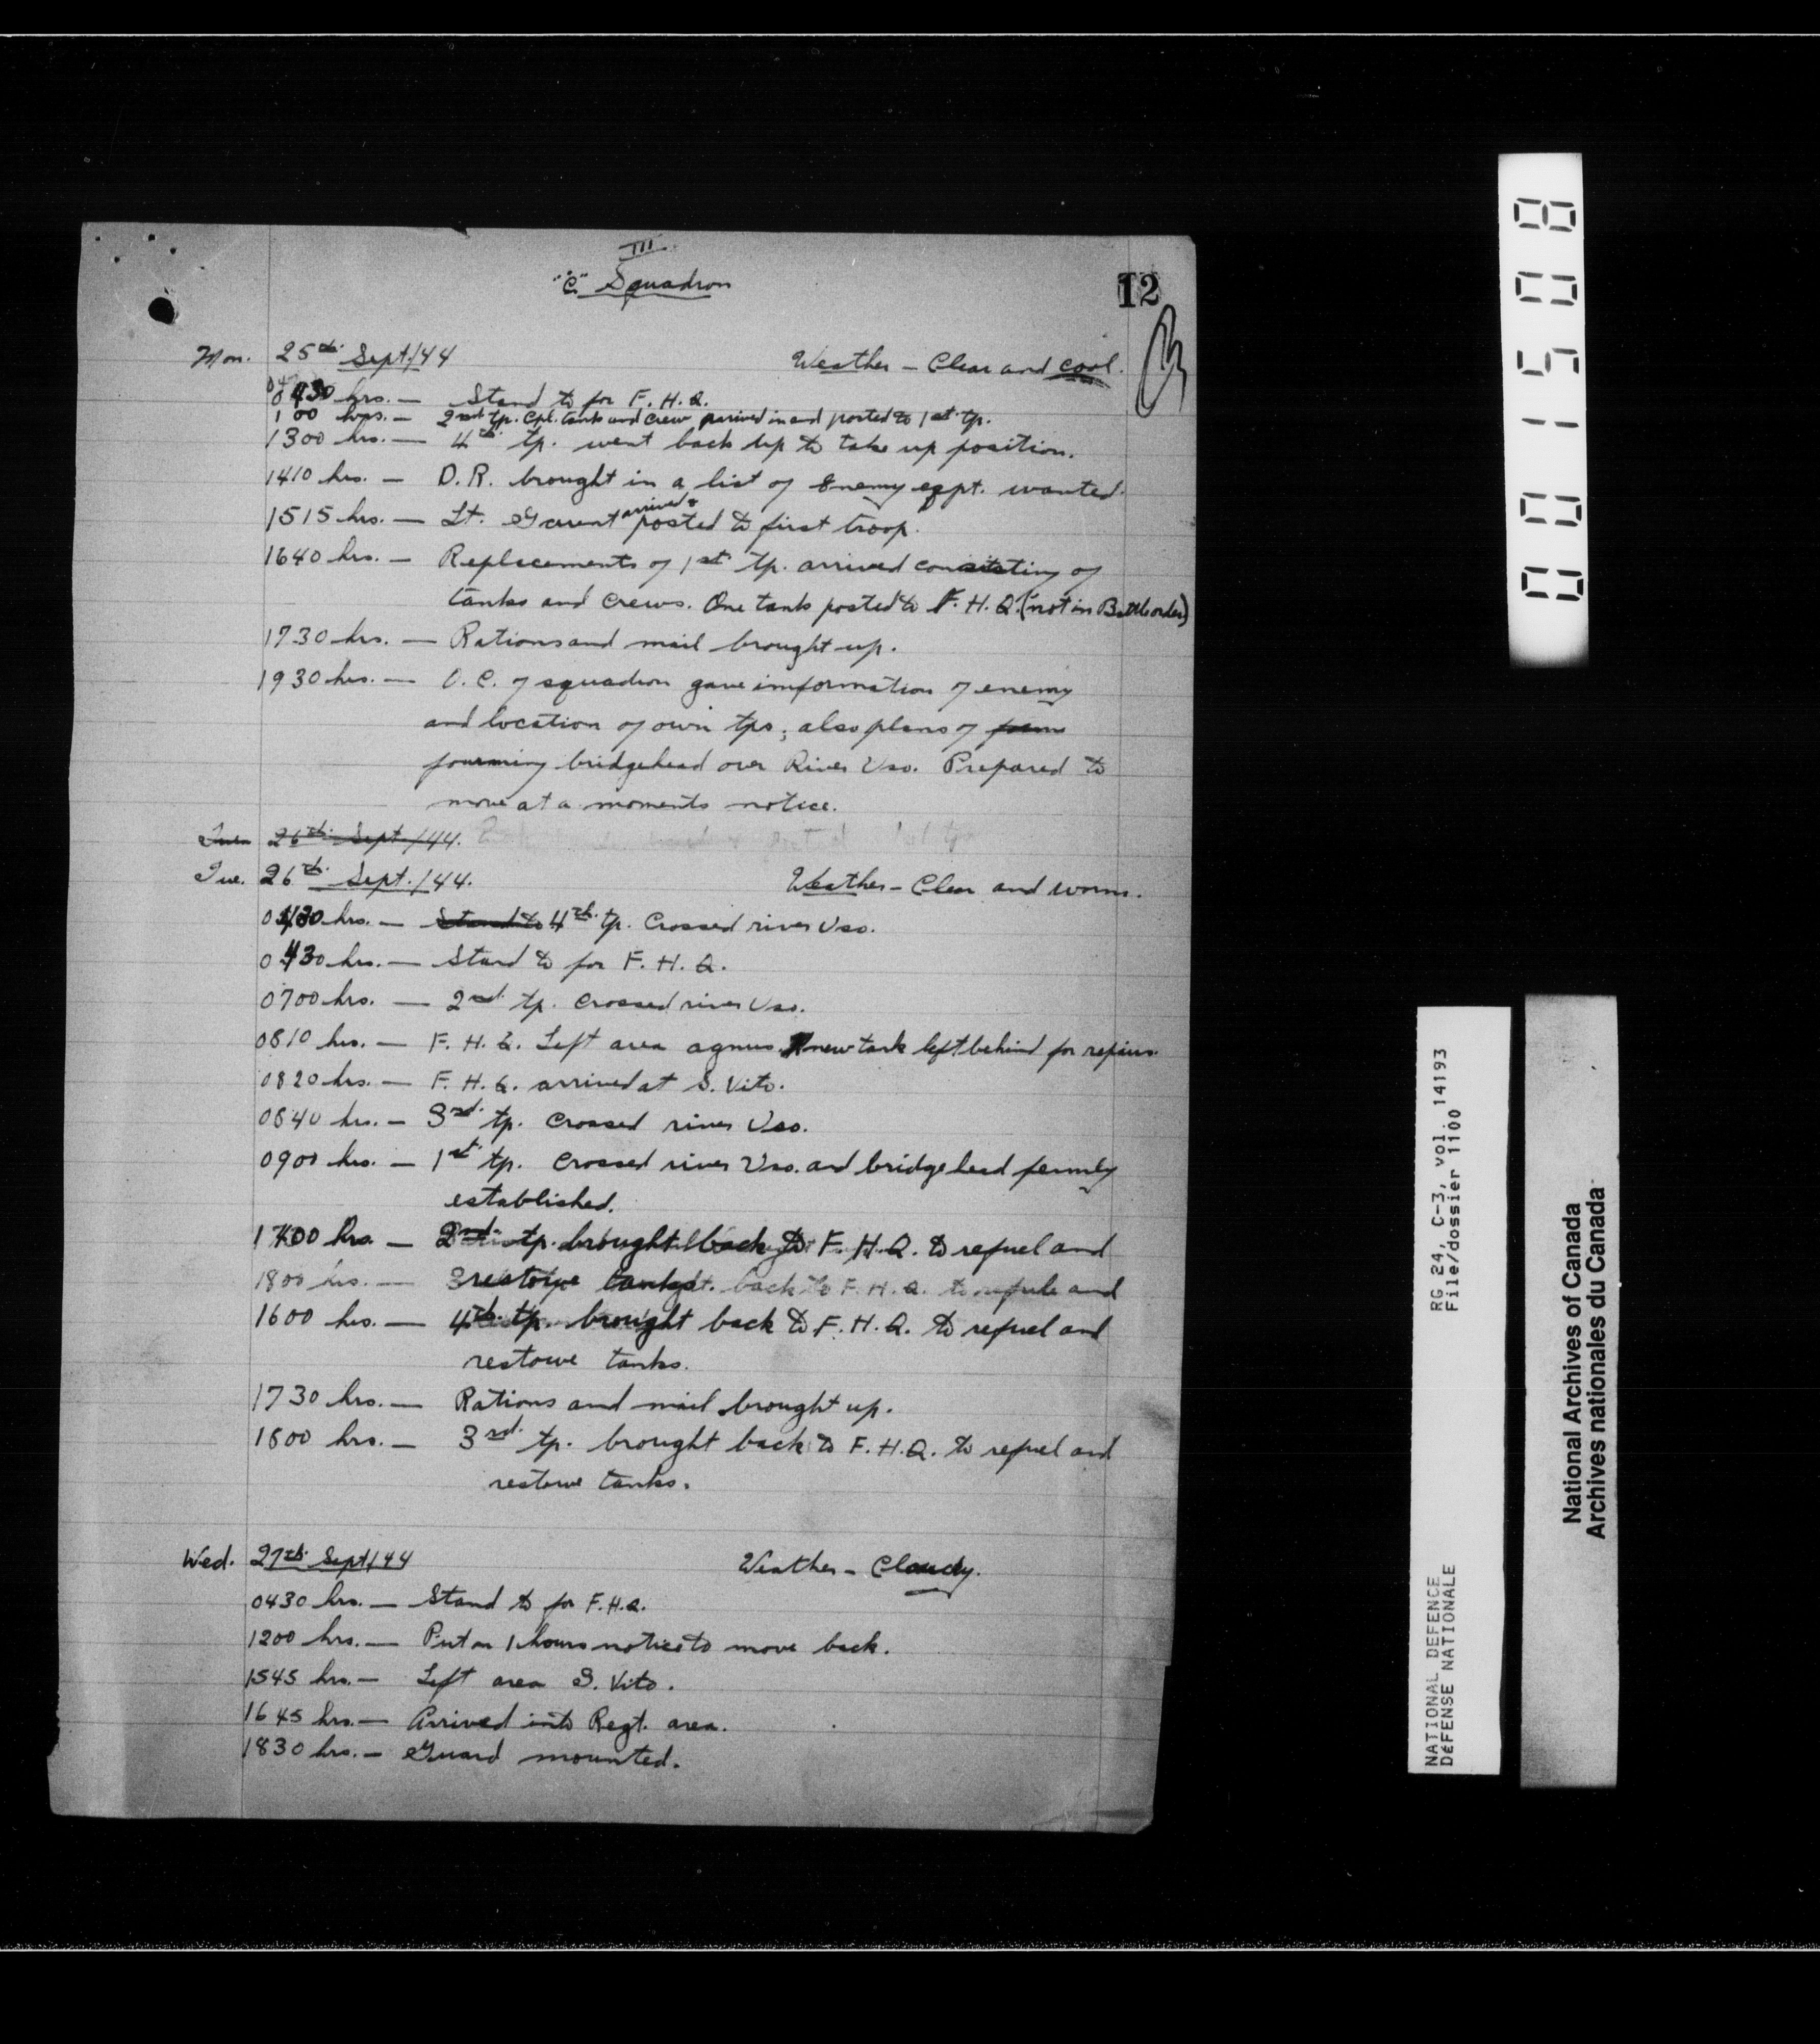 III
"C" Squadron
12
Mon. 25th Sept/44 Weather - Clear and cool.
0430 hrs. — Stand to for F. H. Q.
1 00 hrs. — 2nd tp. Cpl. tank and crew arrived in and posted to 1st tp.
1300 hrs. — 4th tp. went back up to take up position.
1410 hrs. — D. R. brought in a list of Enemy eqpt. wanted.
1515 hrs. — Lt. arrived & posted to first troop.
1640 hrs. — Replacements of 1st tp. arrived consisting of
tanks and crews. One tank posted to F. H. Q. (not in Battle order)
1730 hrs. — Rations and mail brought up.
1930 hrs. — O. C. of squadron gave imformation of enemy
and location of own tps; also plans of
fourming bridgehead over River Uso. Prepared to
move at a moments notice.
Tues 26th Sept./44.
Tue. 26th Sept./44. Weather - Clear and worm.
0430 hrs. — Stand to 4th tp. Crossed river Uso.
0430 hrs. — Stand to for F. H. Q.
0700 hrs. — 2nd tp. crossed river Uso.
0810 hrs. — F. H. Q. Left area agnus. 1 new tank left behind for repairs.
0820 hrs. — F. H. Q. arrived at S. Vito.
0840 hrs. — 3rd tp. crossed river Uso.
0900 hrs. — 1st tp. crossed river Uso. and bridge head fermly
established.
1700 hrs. — 2nd tp. brought back to F. H. Q. to refuel and
1800 hrs. — restowe tanks. back to F. H. Q. to refule and
1600 hrs. — 4th tp. brought back to F. H. Q. to refuel and
restowe tanks.
1730 hrs. — Rations and mail brought up.
1800 hrs. — 3rd tp. brought back to F. H. Q. to refuel and
restowe tanks.
Wed. 27th Sept/44 Weather - Cloudy.
0430 hrs. — Stand to for F. H. Q.
1200 hrs. — Put on 1 hours notice to move back.
1545 hrs. — Left area S. Vito.
1645 hrs. — Arrived into Regt. area.
1830 hrs. — Guard mounted.
0011508
RG 24, C-3, vol. 14193
File/dossier 1100
NATIONAL DEFENCE
DÉFENSE NATIONALE
National Archives of Canada
Archives nationales du Canada